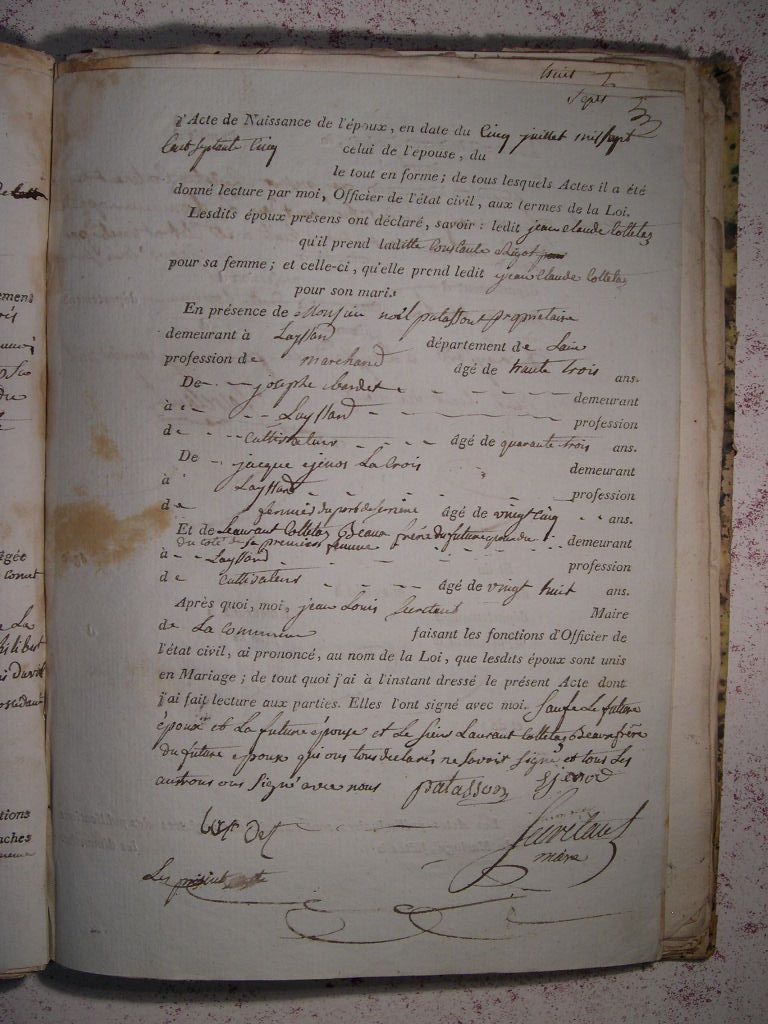 huit
Sept
l'Acte de Naissance de l'époux, en date du Cinq juillet mil sept
Cent septante Cinq celui de l'épouse, du
le tout en forme; de tous lesquels Actes il a été
donné lecture par moi, Officier de l'état civil, aux termes de la Loi.
Lesdits époux présens ont déclaré, savoir : ledit jean Claude Colletaz
qu'il prend laditte Constante
pour sa femme; et celle-ci, qu'elle prend ledit jean Claude Colletaz
pour son mari.
En présence de Monsieur noël patasson propriétaire
demeurant à Layssard département de Lain
profession de marchand âgé de trante trois ans.
De josephe bardet demeurant
à Layssard profession
de Cultivateur âgé de quarante trois ans.
De jacque ejenos La Crois demeurant
à Layssard profession
de fermier du port de serriere âgé de vingt Cinq ans.
Et de Leaurant Colletaz Beaux frére du future epoux du
du coté de sa premiere femme demeurant
à Layssard profession
de Cultivateur âgé de vingt huit ans.
Après quoi, moi, jean Louis Maire
de La Commune faisant les fonctions d'Officier de
l'état civil, ai prononcé, au nom de la Loi, que lesdits époux sont unis
en Mariage; de tout quoi j'ai à l'instant dressé le présent Acte dont
j'ai fait lecture aux parties. Elles l'ont signé avec moi. Saufe Le future
époux et La future épouse et Le sieur Laurant Colletaz Beaux frére
du future epoux qui ons tous declarés ne savoir signé et tous Les
austrous ons signé avec nous patasson ejenod
maire
Les